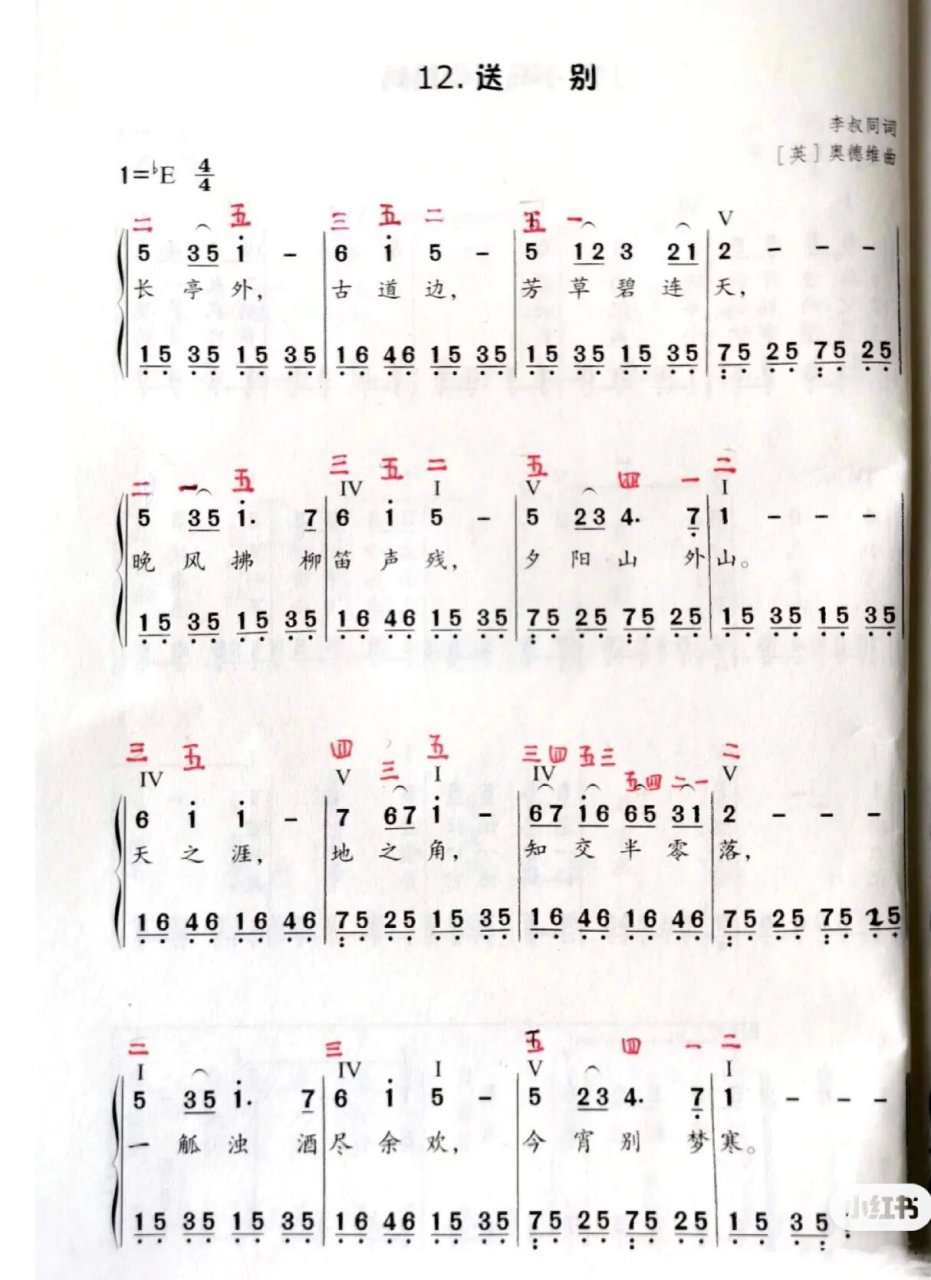 12. 送 别
李叔同词
1=♭E 4/4
[英] 奥德维曲
二 五 三 五 二 五 一 V
5 35 i - 6 i 5 - 5 12 3 21 2 - - -
长 亭 外, 古 道 边, 芳 草 碧 连 天,
15 35 15 35 16 46 15 35 15 35 15 35 75 25 75 25
二 一 五 三 五 二 五 四 一 二
IV I V I
5 35 i. 7 6 i 5 - 5 23 4. 7 1 - - -
晚 风 拂 柳 笛 声 残, 夕 阳 山 外 山。
15 35 15 35 16 46 15 35 75 25 75 25 15 35 15 35
三 五 四 三 五 三 四 五 三 五 四 二 一 二
IV V I IV V
6 i i - 7 67 i - 67 i6 65 31 2 - - -
天 之 涯, 地 之 角, 知 交 半 零 落,
16 46 16 46 75 25 15 35 16 46 16 46 75 25 75 25
二 三 五 四 一 二
I IV I V I
5 35 i. 7 6 i 5 - 5 23 4. 7 1 - - -
一 觚 浊 酒 尽 余 欢, 今 宵 别 梦 寒。
15 35 15 35 16 46 15 35 75 25 75 25 15 35
小红书